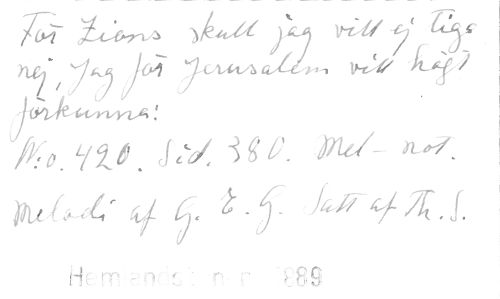 För Zions skull jag vill ej tiga
nej, Jag för Jerusalem vill högt
förkunna:
N:o. 420. Sid. 380. Mel-not.
Melodi af G. E. G. Satt af Th. S.